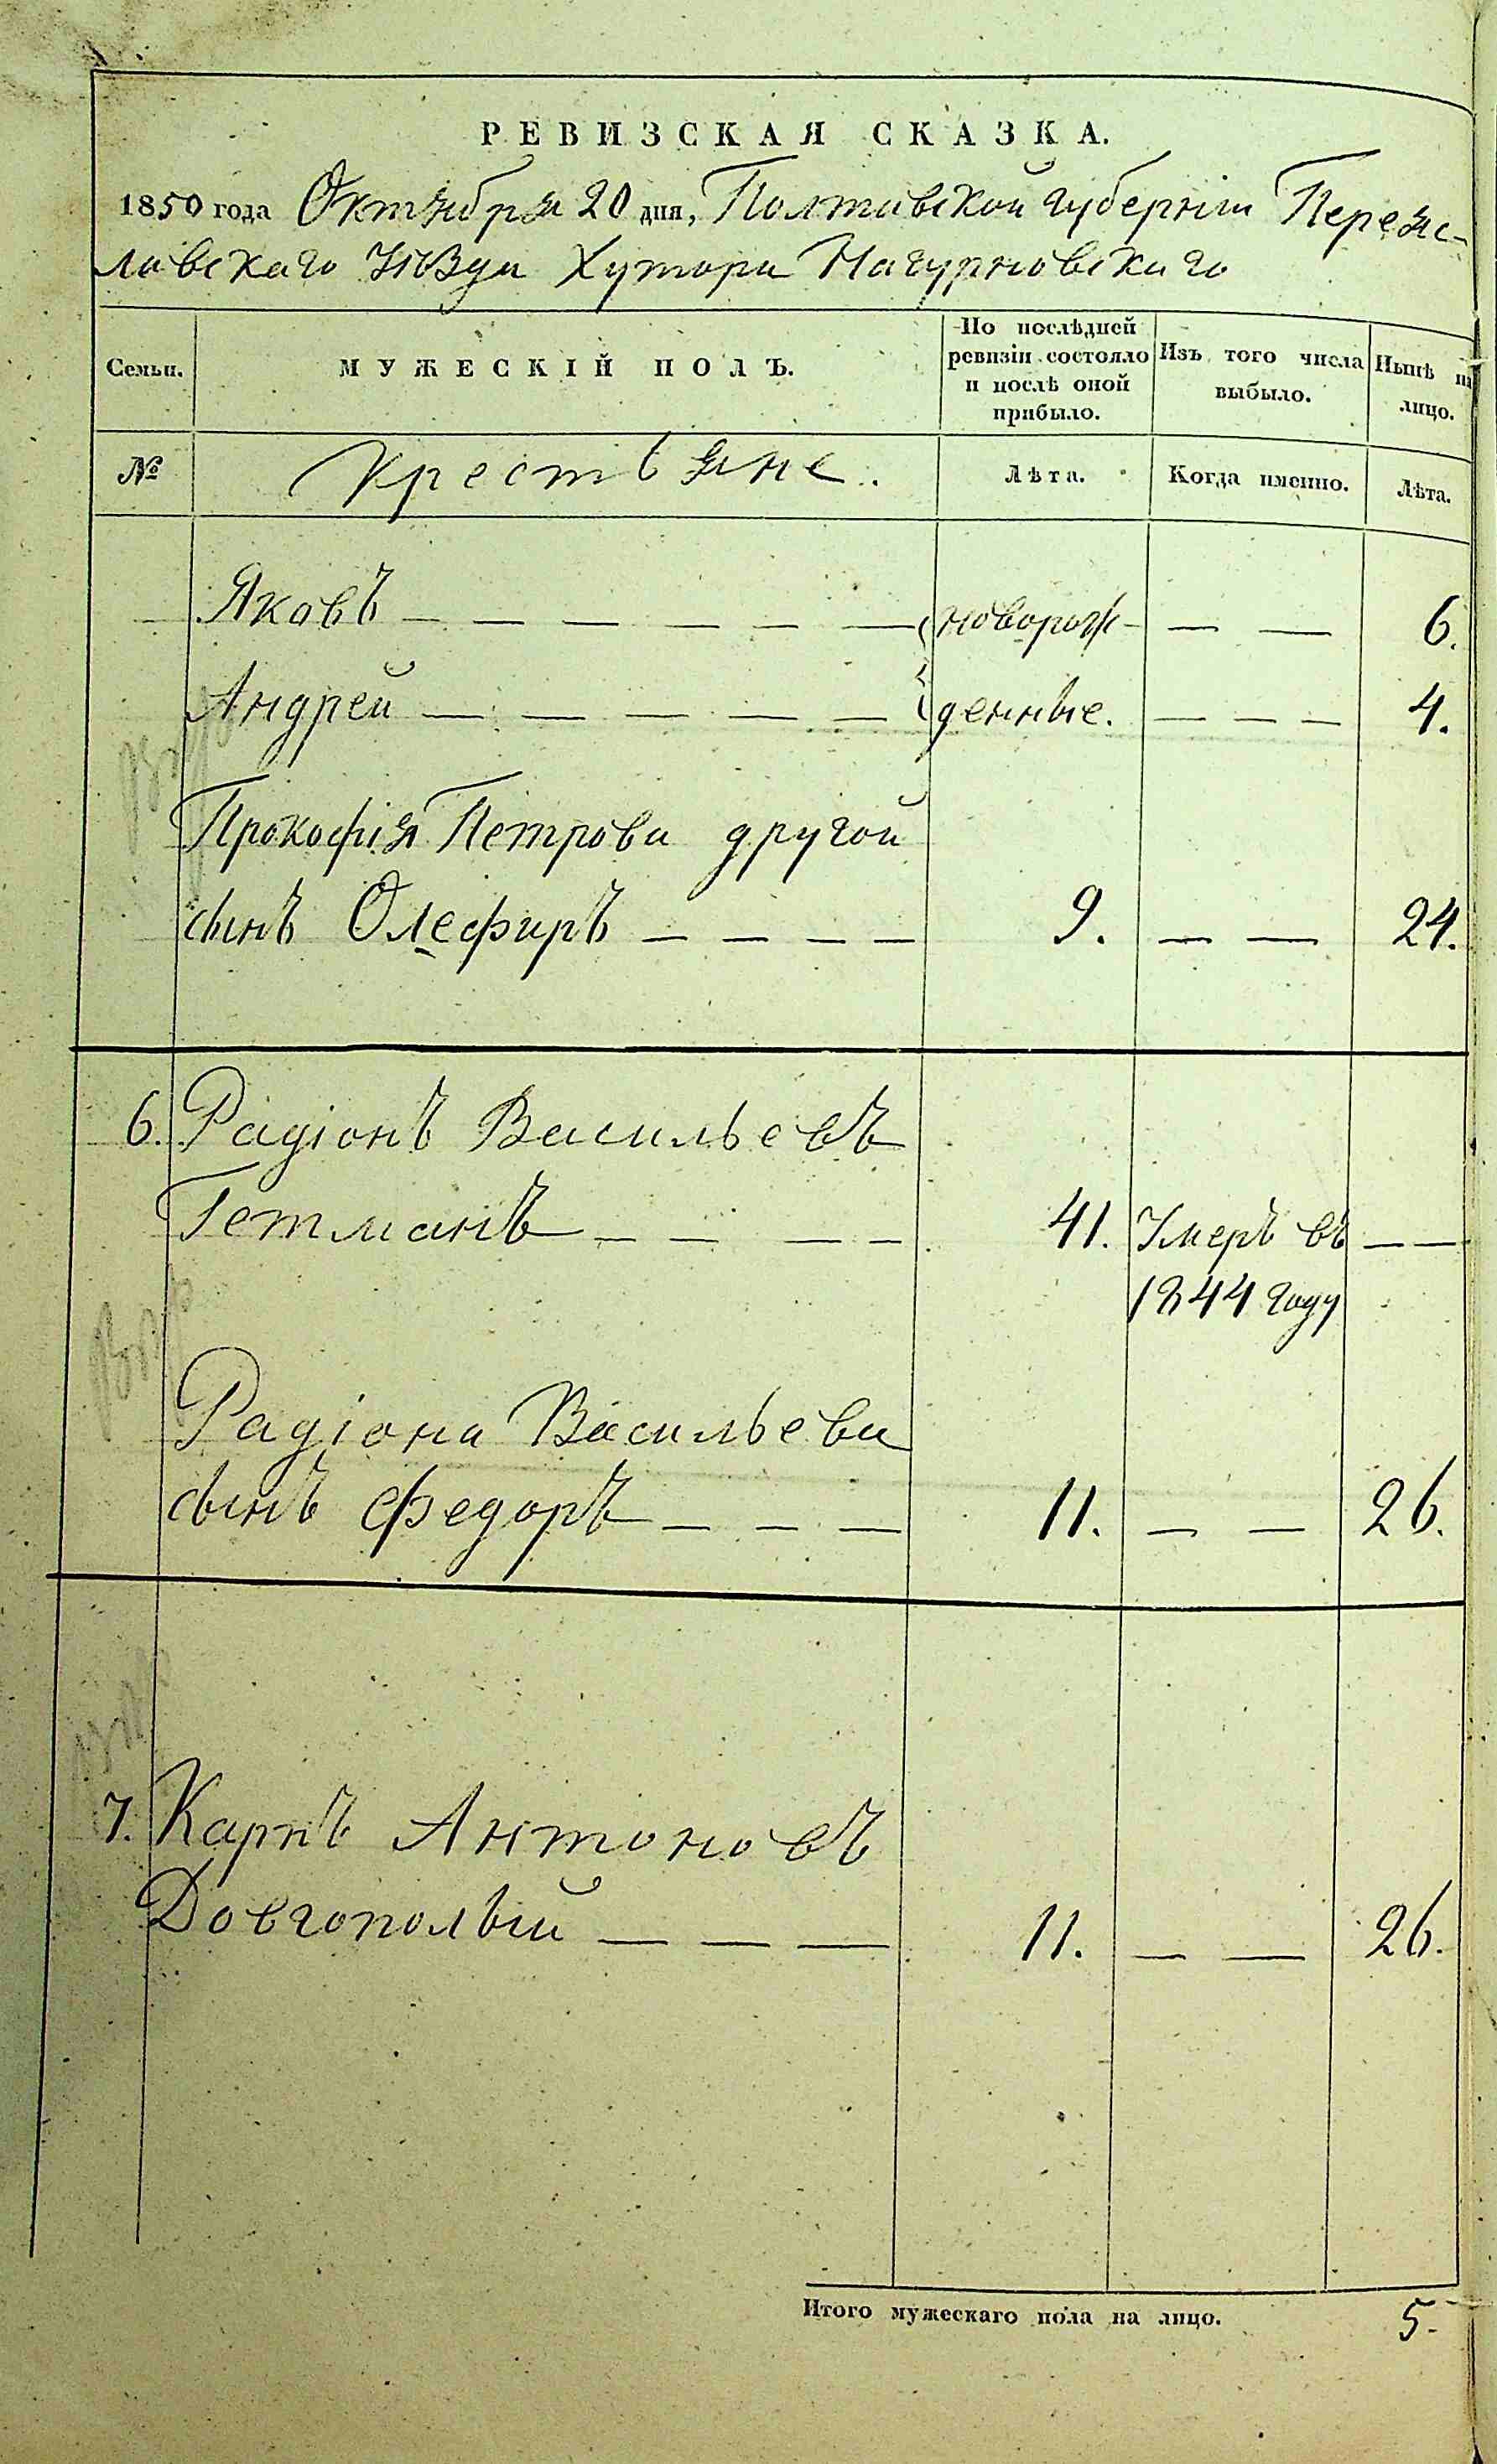 РЕВИЗСКАЯ СКАЗКА.
1850 года Октября 20 дня, Полтавской губернiи Переяс-
лавскаго уѣзда Хутора
Семьи.
МУЖЕСКІЙ ПОЛЪ.
По послѣдней
ревизіи состояло
и послѣ оной
прибыло.
Изъ того числа
выбыло.
Нынѣ на
лицо.
№
Крестьяне.
Лѣта.
Когда именно.
Лѣта.
Яковъ — — — — — — новорож- — — 6.
Андрей — — — — — денные. — — — 4.
Прокофія Петрова другой
сынъ Олефиръ — — — — 9. — — 24.
6. Радіонъ Васильевъ
Гетманъ — — — — 41. Умеръ въ — —
1844 году
Радіона Васильева
сынъ Федоръ — — — 11. — — 26.
7. Карпъ Антоновъ
Довгополый — — — 11. — — 26.
Итого мужескаго пола на лицо. 5.